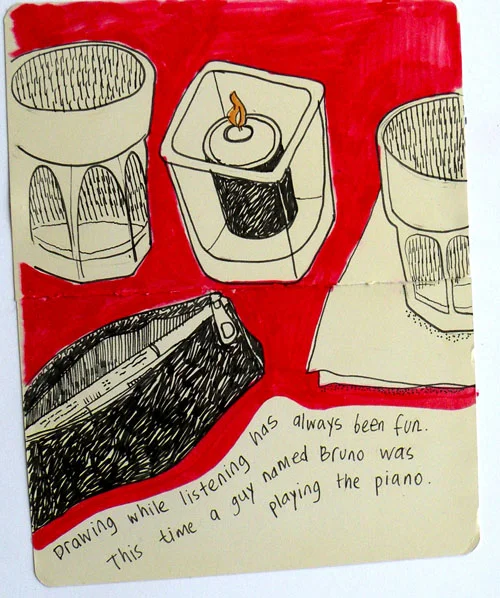 Drawing while listening has always been fun.
This time a guy named Bruno was
playing the piano.